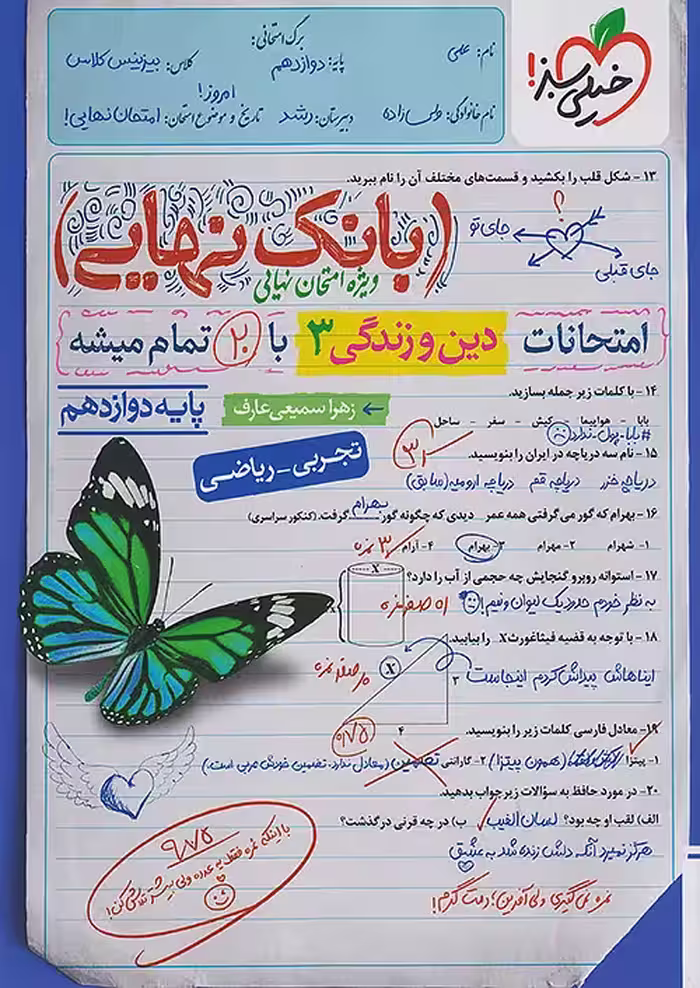 خیلی سبز!
برگ امتحانی:
نام: علی
پایه: دوازدهم
کلاس: بیزینس کلاس
نام خانوادگی: ولی‌زاده
دبیرستان: رشد
تاریخ و موضوع امتحان: امروز! امتحان نهایی!
۱۳ - شکل قلب را بکشید و قسمت‌های مختلف آن را نام ببرید.
؟
جای تو
جای قبلی
(بانک نهایی)
ویژه امتحان نهایی
امتحانات دین و زندگی ۳ با ۲۰ تمام میشه
۱۴ - با کلمات زیر جمله بسازید.
پایه دوازدهم
← زهرا سمیعی عارف
بابا - هواپیما - کیش - سفر - ساحل
#بابا-پول-ندارد
تجربی - ریاضی
۱۵ - نام سه دریاچه در ایران را بنویسید.
دریاچه خزر دریاچه قم دریاچه ارومیه (سابق)
۱۶ - بهرام که گور می‌گرفتی همه عمر دیدی که چگونه گور بهرام گرفت. (کنکور سراسری)
۱- شهرام ۲- مهرام ۳- بهرام ۴- آرام
۳ نمره
۱۷ - استوانه روبرو گنجایش چه حجمی از آب را دارد؟
X
به نظر خودم حدود یک لیوان و نیم!
۱۸ - با توجه به قضیه فیثاغورث X را بیابید.
ایناهاش پیداش کردم اینجاست
X
۳
۴
۰/۷۵
۱۹ - معادل فارسی کلمات زیر را بنویسید.
۱- پیتزا (همون پیتزا) ۲- گارانتی تضمین (معادل ندارد. تضمین خودش عربی است.)
۲۰ - در مورد حافظ به سؤالات زیر جواب بدهید.
الف) لقب او چه بود؟ لسان الغیب ب) در چه قرنی درگذشت؟
هرگز نمیرد آنکه دلش زنده شد به عشق
۹/۷۵
با اینکه نمره فقط یه عدده ولی بیشتر تلاش کن!
نمره نمی‌گیری ولی آفرین؛ دمت گرم!